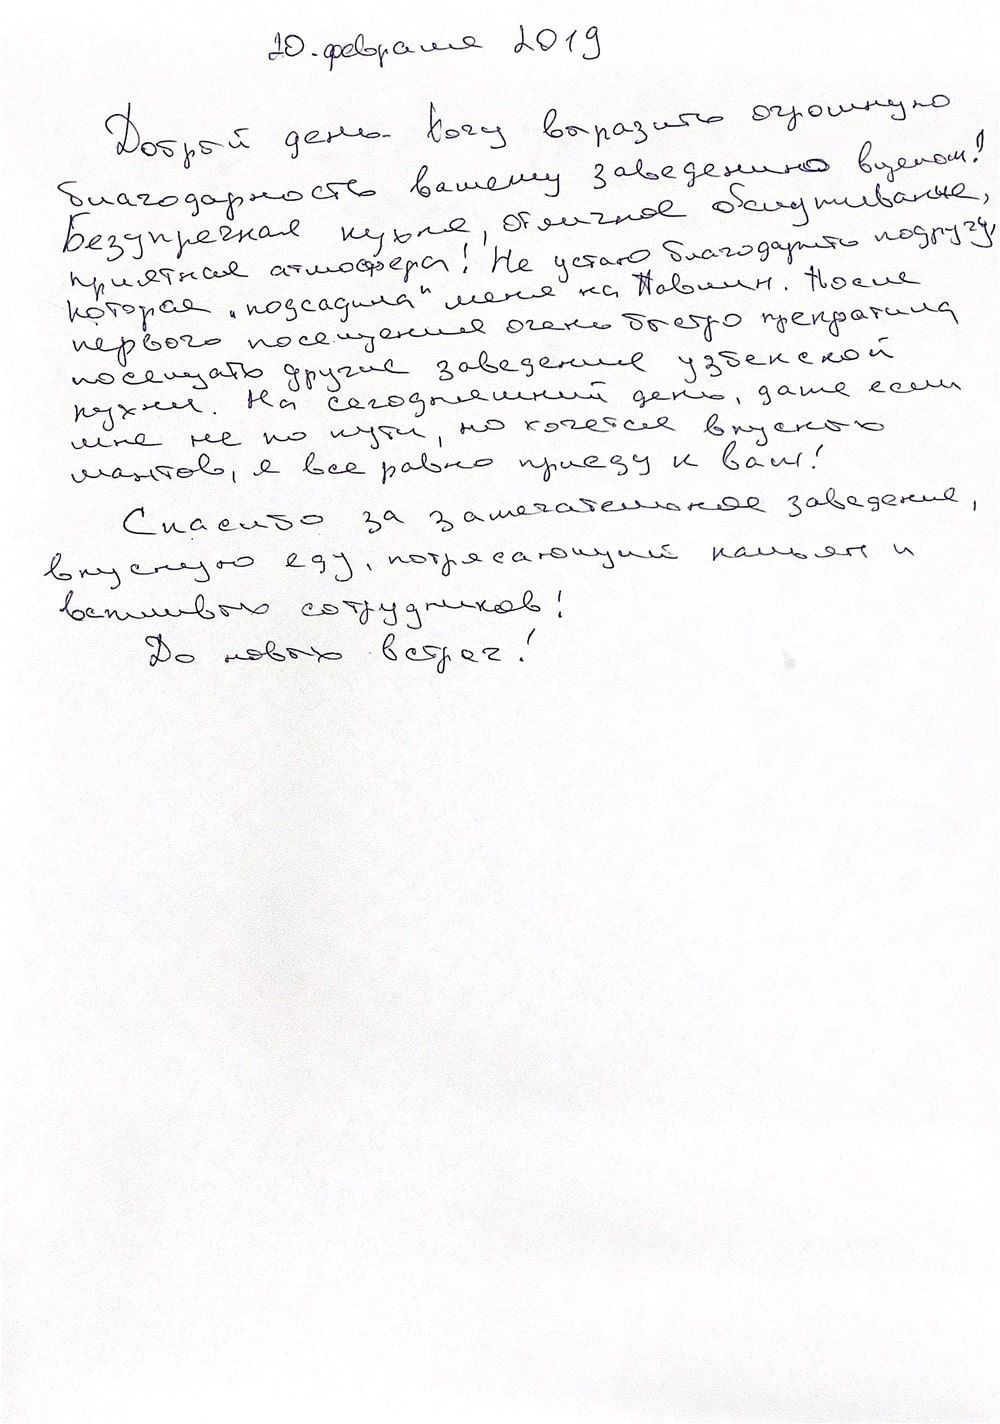 20. февраля 2019
Добрый день. Хочу выразить огромную
благодарность вашему заведению вцелом!
Безупречная кухня, отличное обслуживание,
приятная атмосфера! Не устаю благодарить подругу,
которая "подсадила" меня на Павлин. После
первого посещения очень быстро прекратила
посещать другие заведение узбекской
кухни. На сегодняшний день, даже если
мне не по пути, но хочется вкусных
мантов, я все равно приеду к вам!
Спасибо за замечательное заведение,
вкусную еду, потрясающий кальян и
вежливых сотрудников!
До новых встреч!